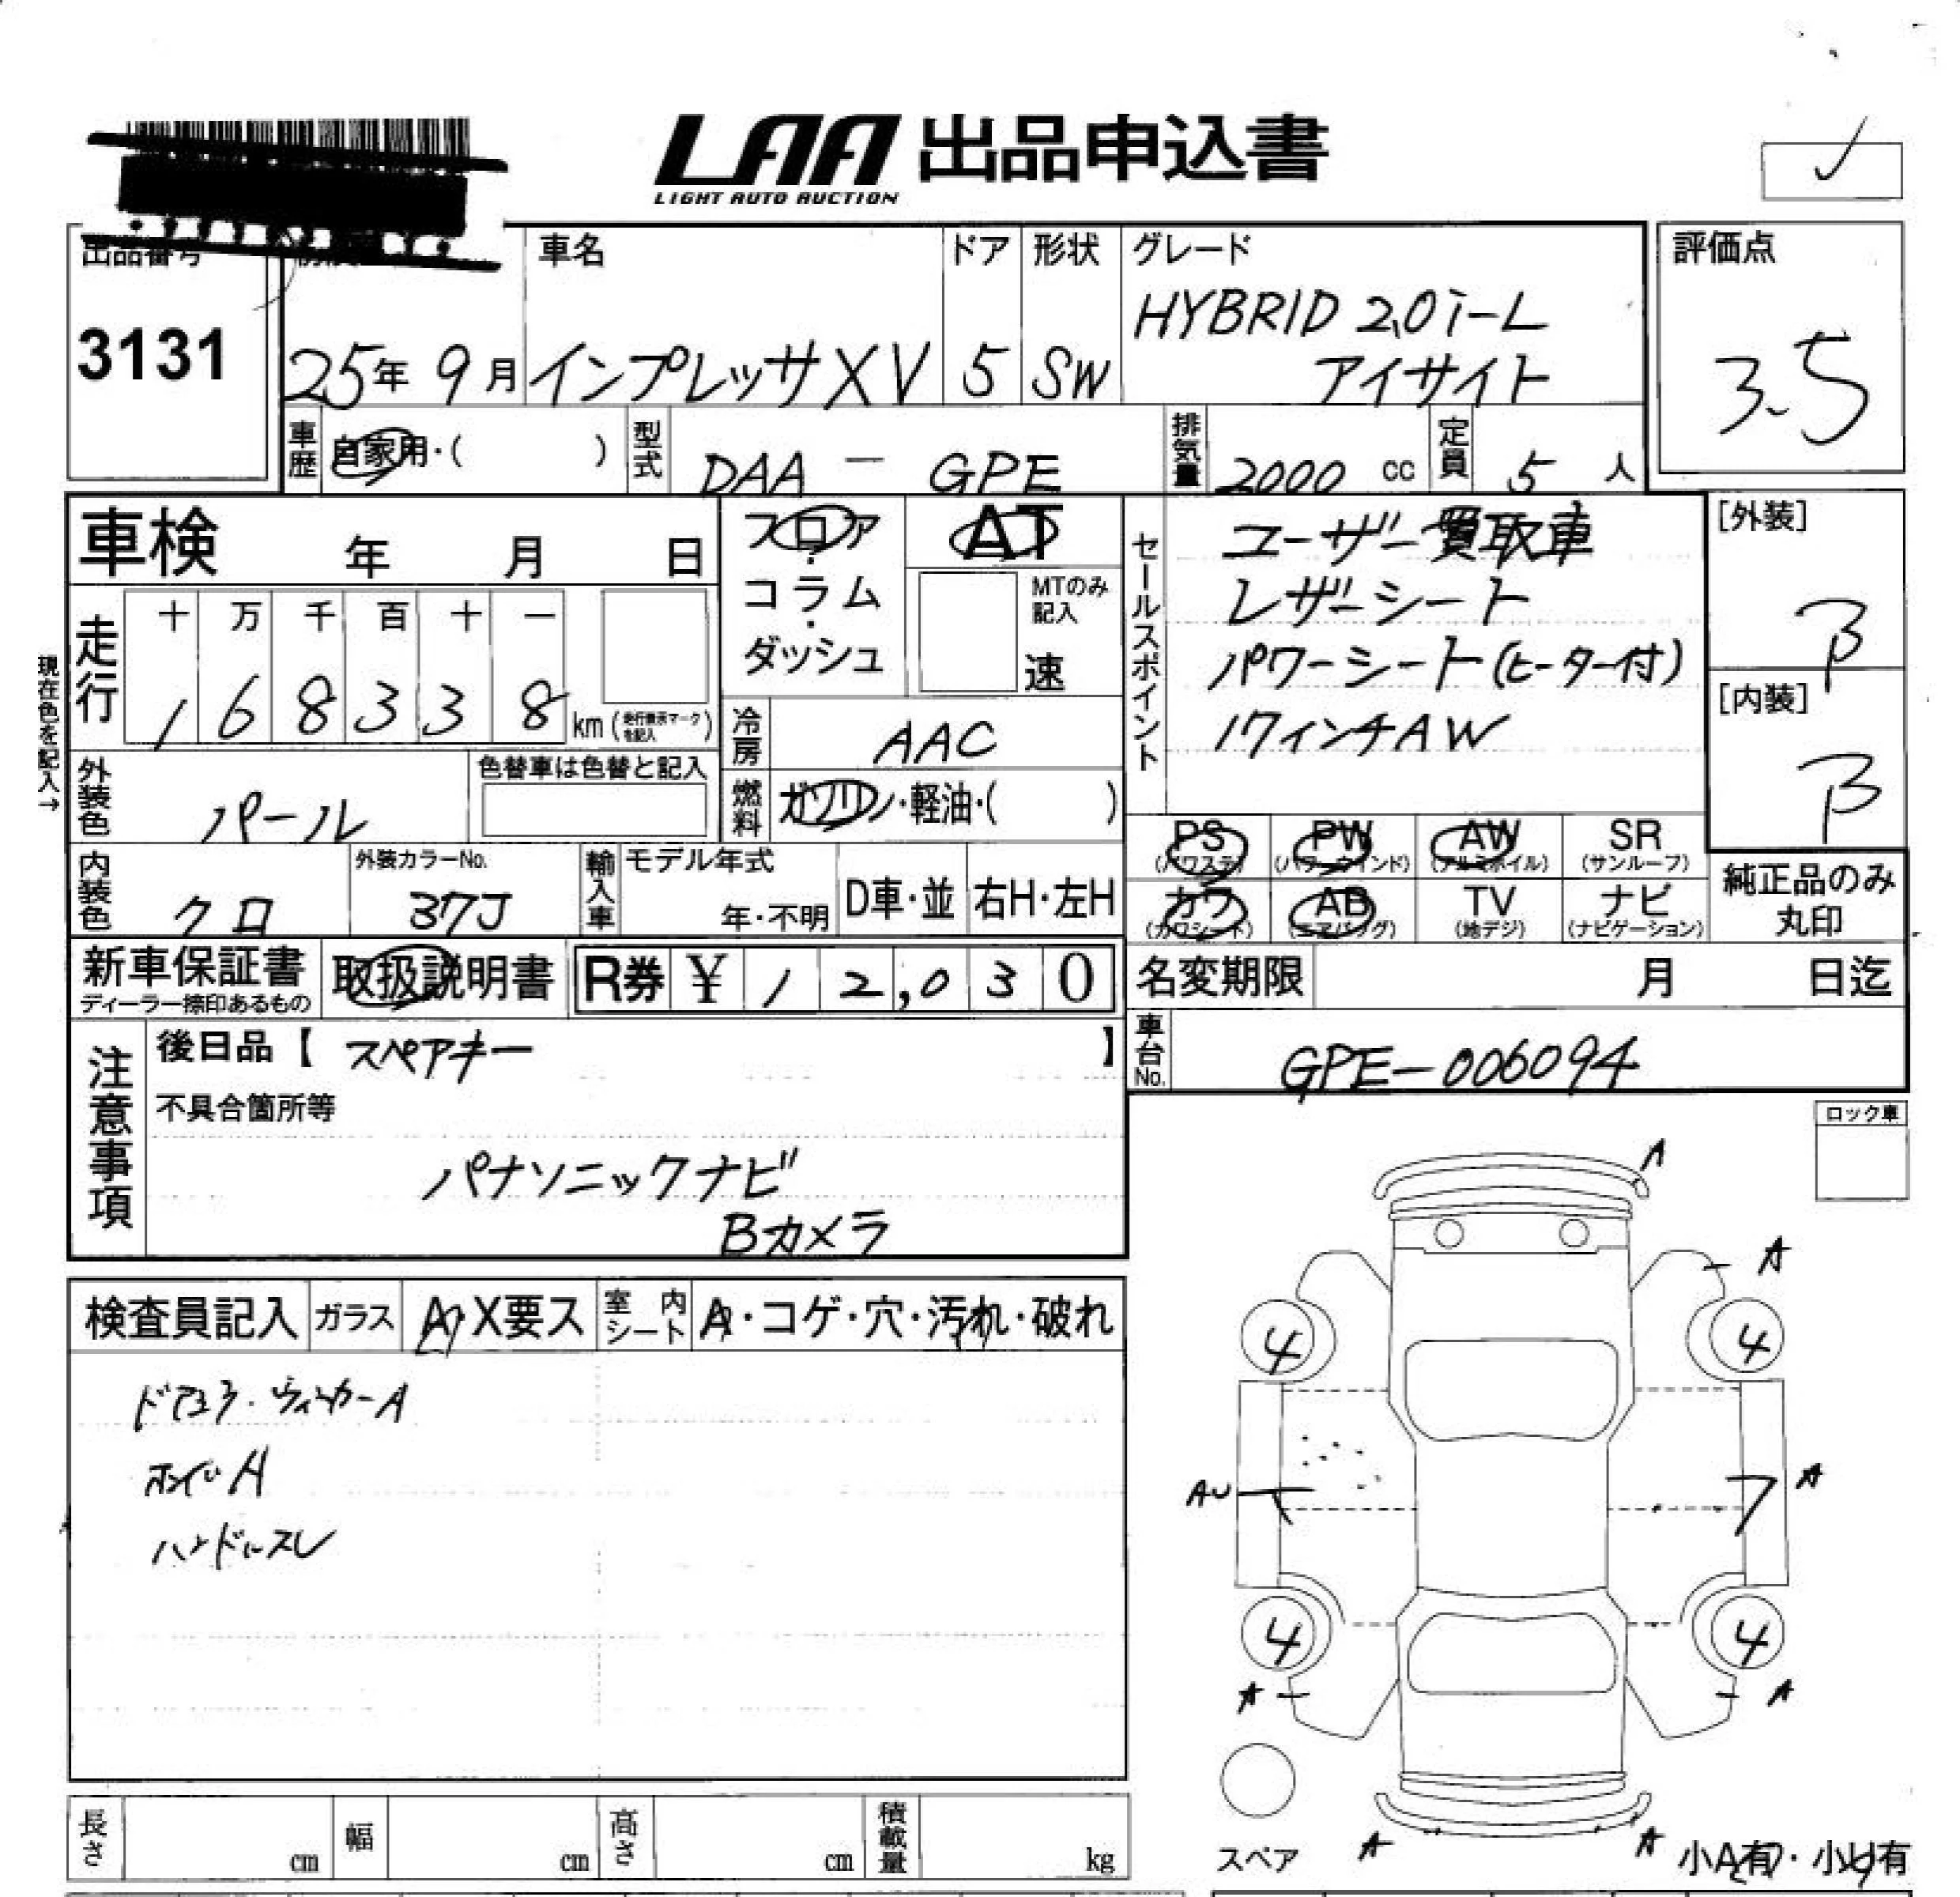 LAA 出品申込書
LIGHT AUTO AUCTION
出品番号
3131
25年 9月
車名
インプレッサXV
ドア
5
形状
SW
グレード
HYBRID 2.0i-L
アイサイト
評価点
3.5
車歴
自家用・( )
型式
DAA - GPE
排気量
2000 cc
定員
5 人
車検 年 月 日
フロア・コラム・ダッシュ
AT
MTのみ記入
速
セールスポイント
ユーザー買取車
レザーシート
パワーシート(ヒーター付)
17インチAW
[外装]
B
[内装]
B
現在色を記入→
走行
十 万 千 百 十 一
1 6 8 3 3 8 km (走行表示マークを記入)
冷房
AAC
外装色
パール
色替車は色替と記入
燃料
ガソリン・軽油・( )
PS
(パワステ)
PW
(パワーウインド)
AW
(アルミホイル)
SR
(サンルーフ)
内装色
クロ
外装カラーNo.
37J
輸入車
モデル年式
年・不明
D車・並
右H・左H
カワ
(カワシート)
AB
(エアバッグ)
TV
(地デジ)
ナビ
(ナビゲーション)
純正品のみ
丸印
新車保証書
ディーラー捺印あるもの
取扱説明書
R券 ¥ 1 2,0 3 0
名変期限 月 日迄
車台No.
GPE-006094
注意事項
後日品【 スペアキー 】
不具合箇所等
パナソニックナビ
Bカメラ
ロック車
検査員記入
ガラス
A・X要ス
室内シート
A・コゲ・穴・汚れ・破れ
ドアミラ・ウィンカーA
ホイルA
ハンドルスレ
A
A
4
4
AU
A
4
4
A
A
スペア
A
A
小A有・小U有
長さ cm
幅 cm
高さ cm
積載量 kg